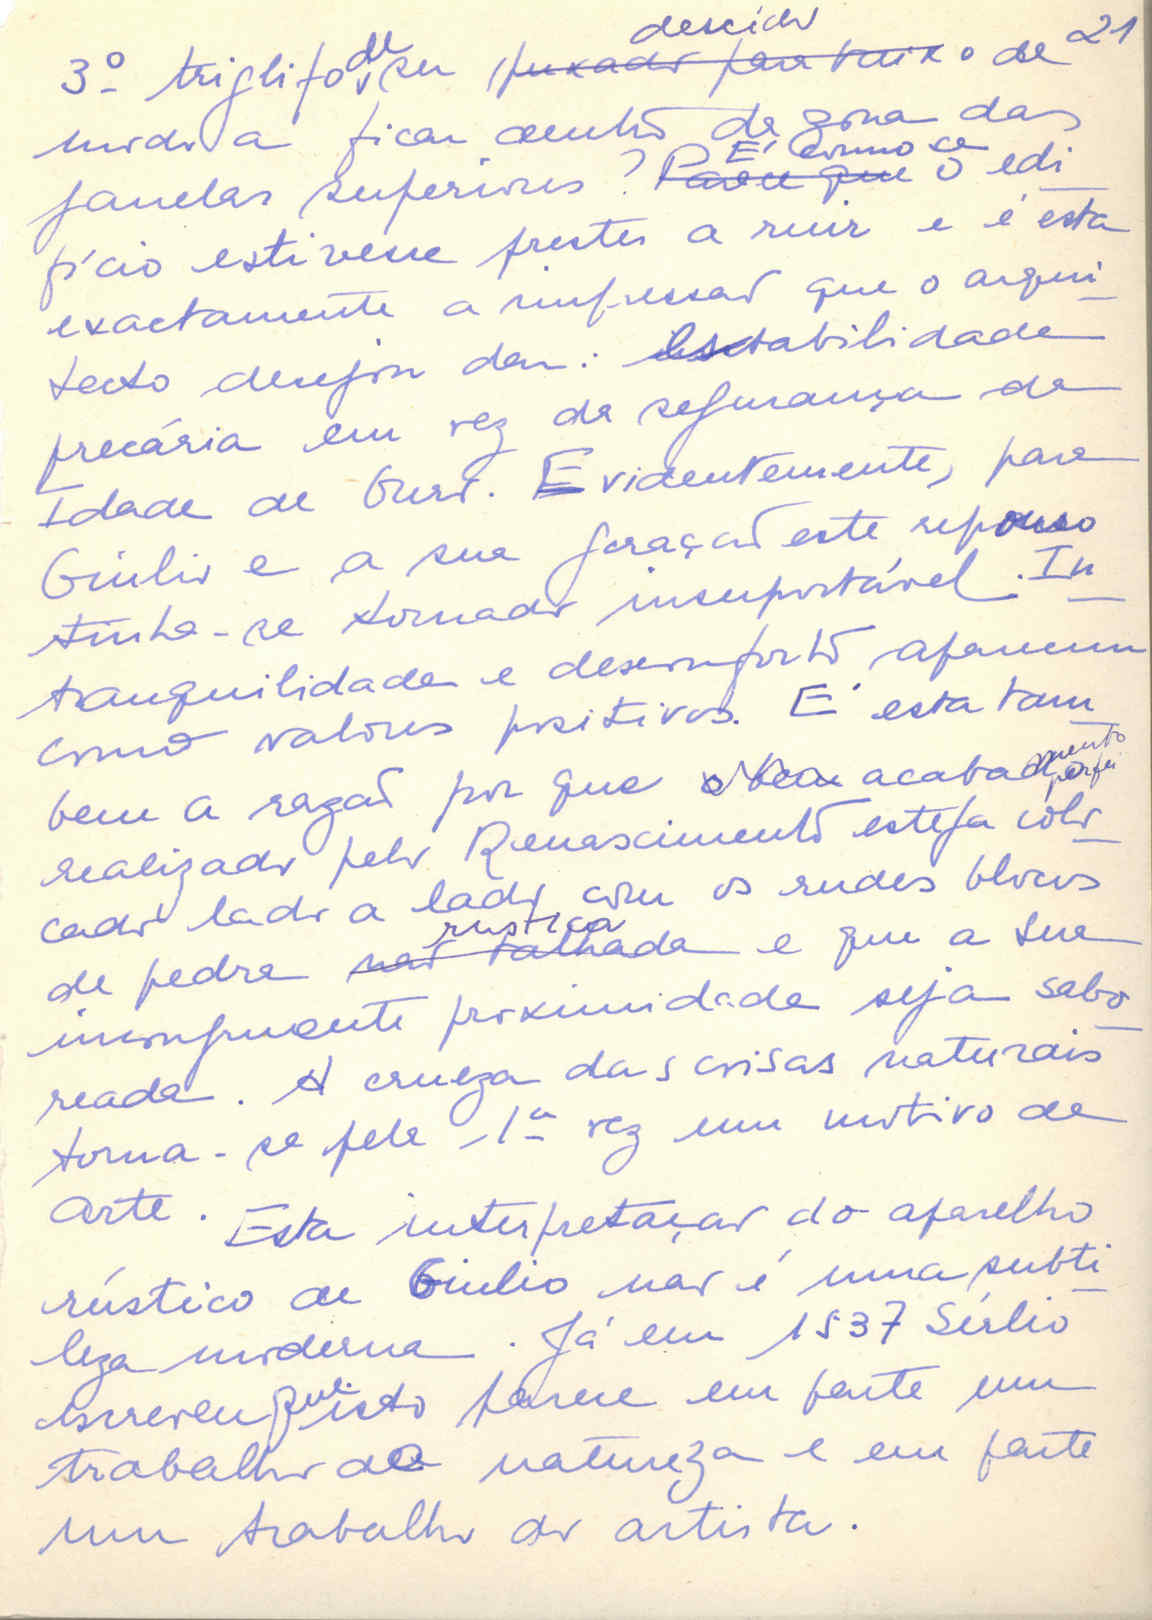 21
descido
3º triglifo de ser puxado para baixo de
modo a ficar dentro da zona das
É como se
janelas superiores? Parece que o edi
fício estivesse prestes a ruir e é esta
exactamente a impressão que o arqui
tecto desejou dar: estabilidade
precária em vez da segurança da
Idade de Ouro. Evidentemente, para
Giulio e a sua geração este repouso
tinha-se tornado insuportável. In
tranquilidade e desconforto aparecem
como valores positivos. É esta tam
bem a razão por que o acabamento perfei
realizado pelo Renascimento esteja colo
cado lado a lado com os rudes blocos
rustica
de pedra não talhada e que a sua
incongruente proximidade seja sabo
reada. A crueza das coisas naturais
torna-se pela 1ª vez um motivo de
arte. Esta interpretação do aparelho
rústico de Giulio não é uma subti
leza moderna. Já em 1537 Sérlio
escreveu que isto parece em parte um
trabalho da natureza e em parte
um trabalho do artista.